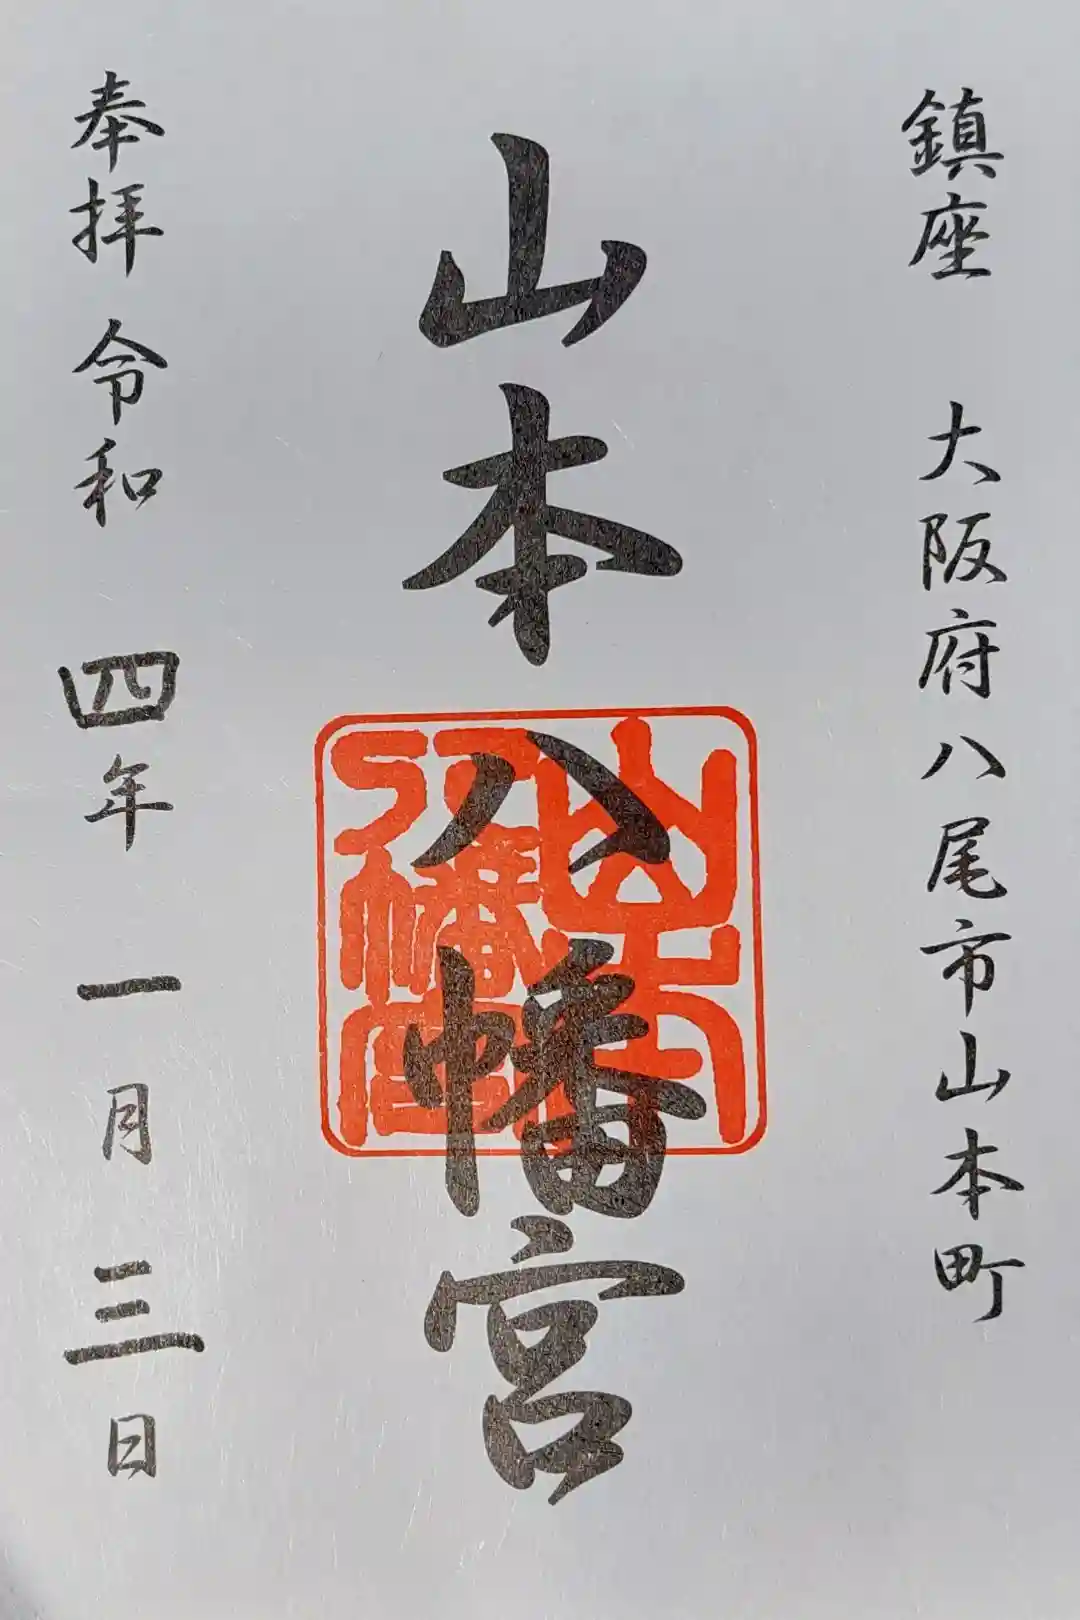 鎮座 大阪府八尾市山本町
山本八幡宮
山本
八幡宮
奉拝 令和四年一月三日